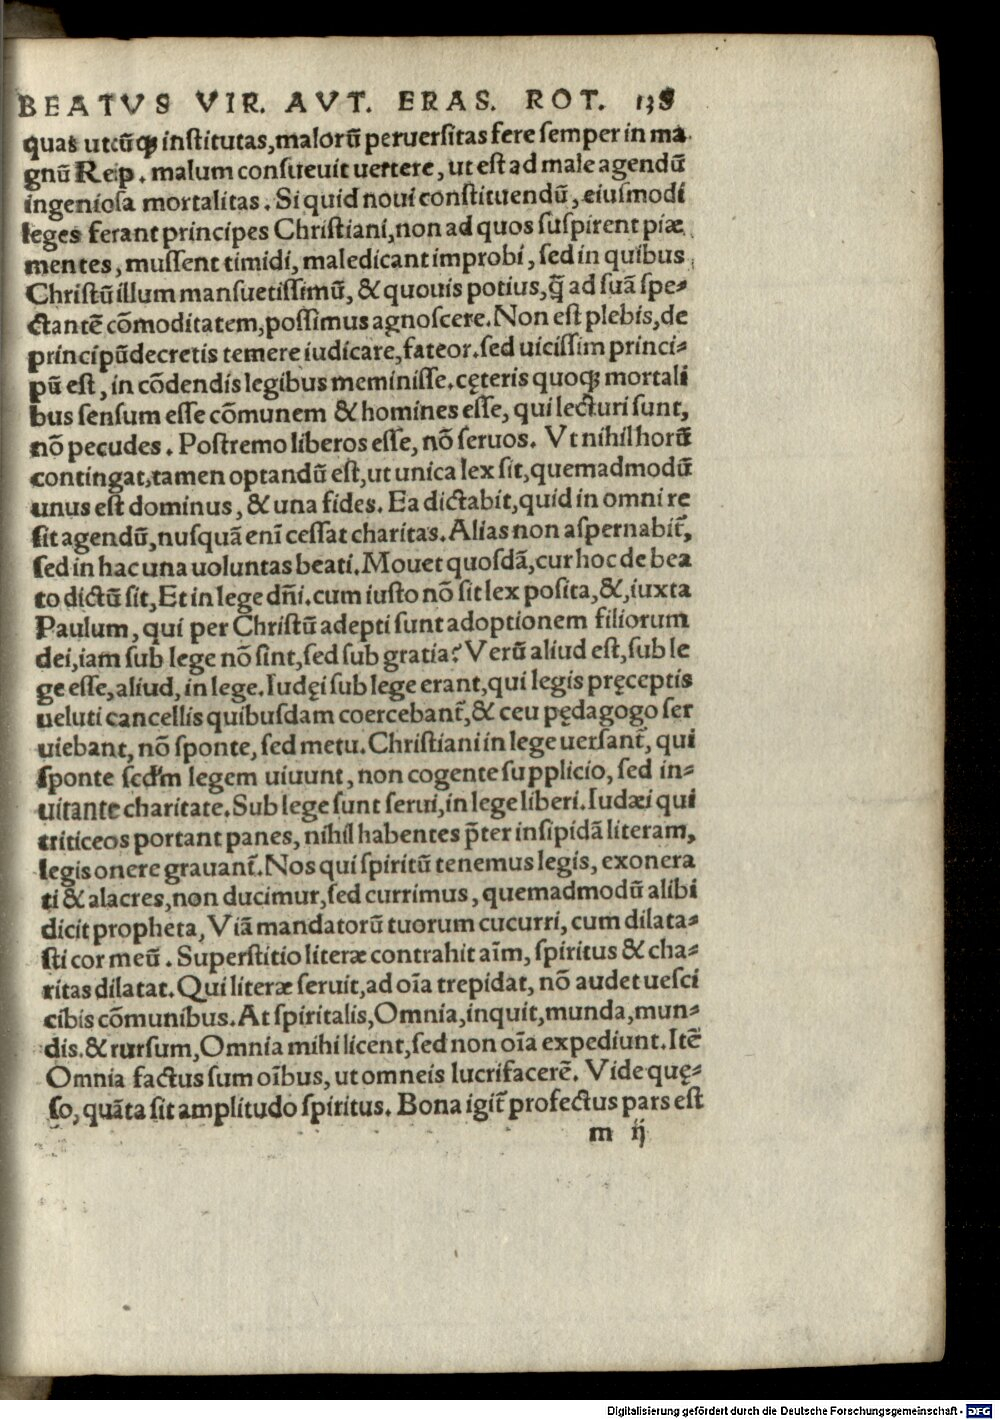 BEATVS VIR. AVT. ERAS. ROT. 138
quas utcũq; institutas,malorũ peruersitas fere semper in ma
gnũ Reip. malum consueuit uertere, ut est ad male agendũ
ingeniosa mortalitas. Si quid noui constituendũ, eiusmodi
leges ferant principes Christiani,non ad quos suspirent piæ
mentes, mussent timidi, maledicant improbi, sed in quibus
Christũ illum mansuetissimũ, & quouis potius,q̃ ad suã spe⸗
ctantẽ cõmoditatem,possimus agnoscere. Non est plebis,de
principũ decretis temere iudicare,fateor.sed uicissim princi⸗
pũ est, in cõdendis legibus meminisse.cęteris quoq; mortali
bus sensum esse cõmunem & homines esse, qui lecturi sunt,
nõ pecudes. Postremo liberos esse, nõ seruos. Vt nihil horũ
contingat,tamen optandũ est,ut unica lex sit,quemadmodũ
unus est dominus, & una fides. Ea dictabit,quid in omni re
sit agendũ,nusquã eni͂ cessat charitas. Alias non aspernabit᷑,
sed in hac una uoluntas beati. Mouet quosdã,cur hoc de bea
to dictũ sit,Et in lege dñi.cum iusto nõ sit lex posita,&,iuxta
Paulum, qui per Christũ adepti sunt adoptionem filiorum
dei,iam sub lege nõ sint,sed sub gratia? Verũ aliud est,sub le
ge esse,aliud, in lege. Iudęi sub lege erant,qui legis pręceptis
ueluti cancellis quibusdam coercebant᷑,& ceu pędagogo ser
uiebant, nõ sponte, sed metu. Christiani in lege uersant᷑, qui
sponte scd'm legem uiuunt, non cogente supplicio, sed in⸗
uitante charitate. Sub lege sunt serui,in lege liberi. Iudæi qui
triticeos portant panes, nihil habentes p̃ter insipidã literam,
legis onere grauant᷑. Nos qui spiritũ tenemus legis, exonera
ti & alacres,non ducimur,sed currimus, quemadmodũ alibi
dicit propheta, Viã mandatorũ tuorum cucurri, cum dilata⸗
sti cor meũ. Superstitio literæ contrahit ai͂m, spiritus & cha⸗
ritas dilatat. Qui literæ seruit,ad oi͂a trepidat, nõ audet uesci
cibis cõmunibus. At spiritalis,Omnia,inquit,munda,mun⸗
dis.& rursum,Omnia mihi licent,sed non oi͂a expediunt. Itẽ
Omnia factus sum oi͂bus, ut omneis lucrifacerẽ. Vide quę⸗
so, quãta sit amplitudo spiritus. Bona igit᷑ profectus pars est
m ij
Digitalisierung gefördert durch die Deutsche Forschungsgemeinschaft - DFG